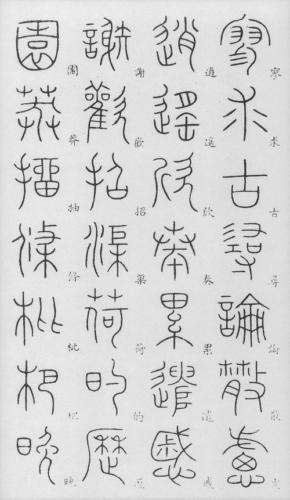 寥求古尋論散慮
逍遙欣奏累遣慼
謝歡招渠荷的歷
園莽抽條枇杷晚